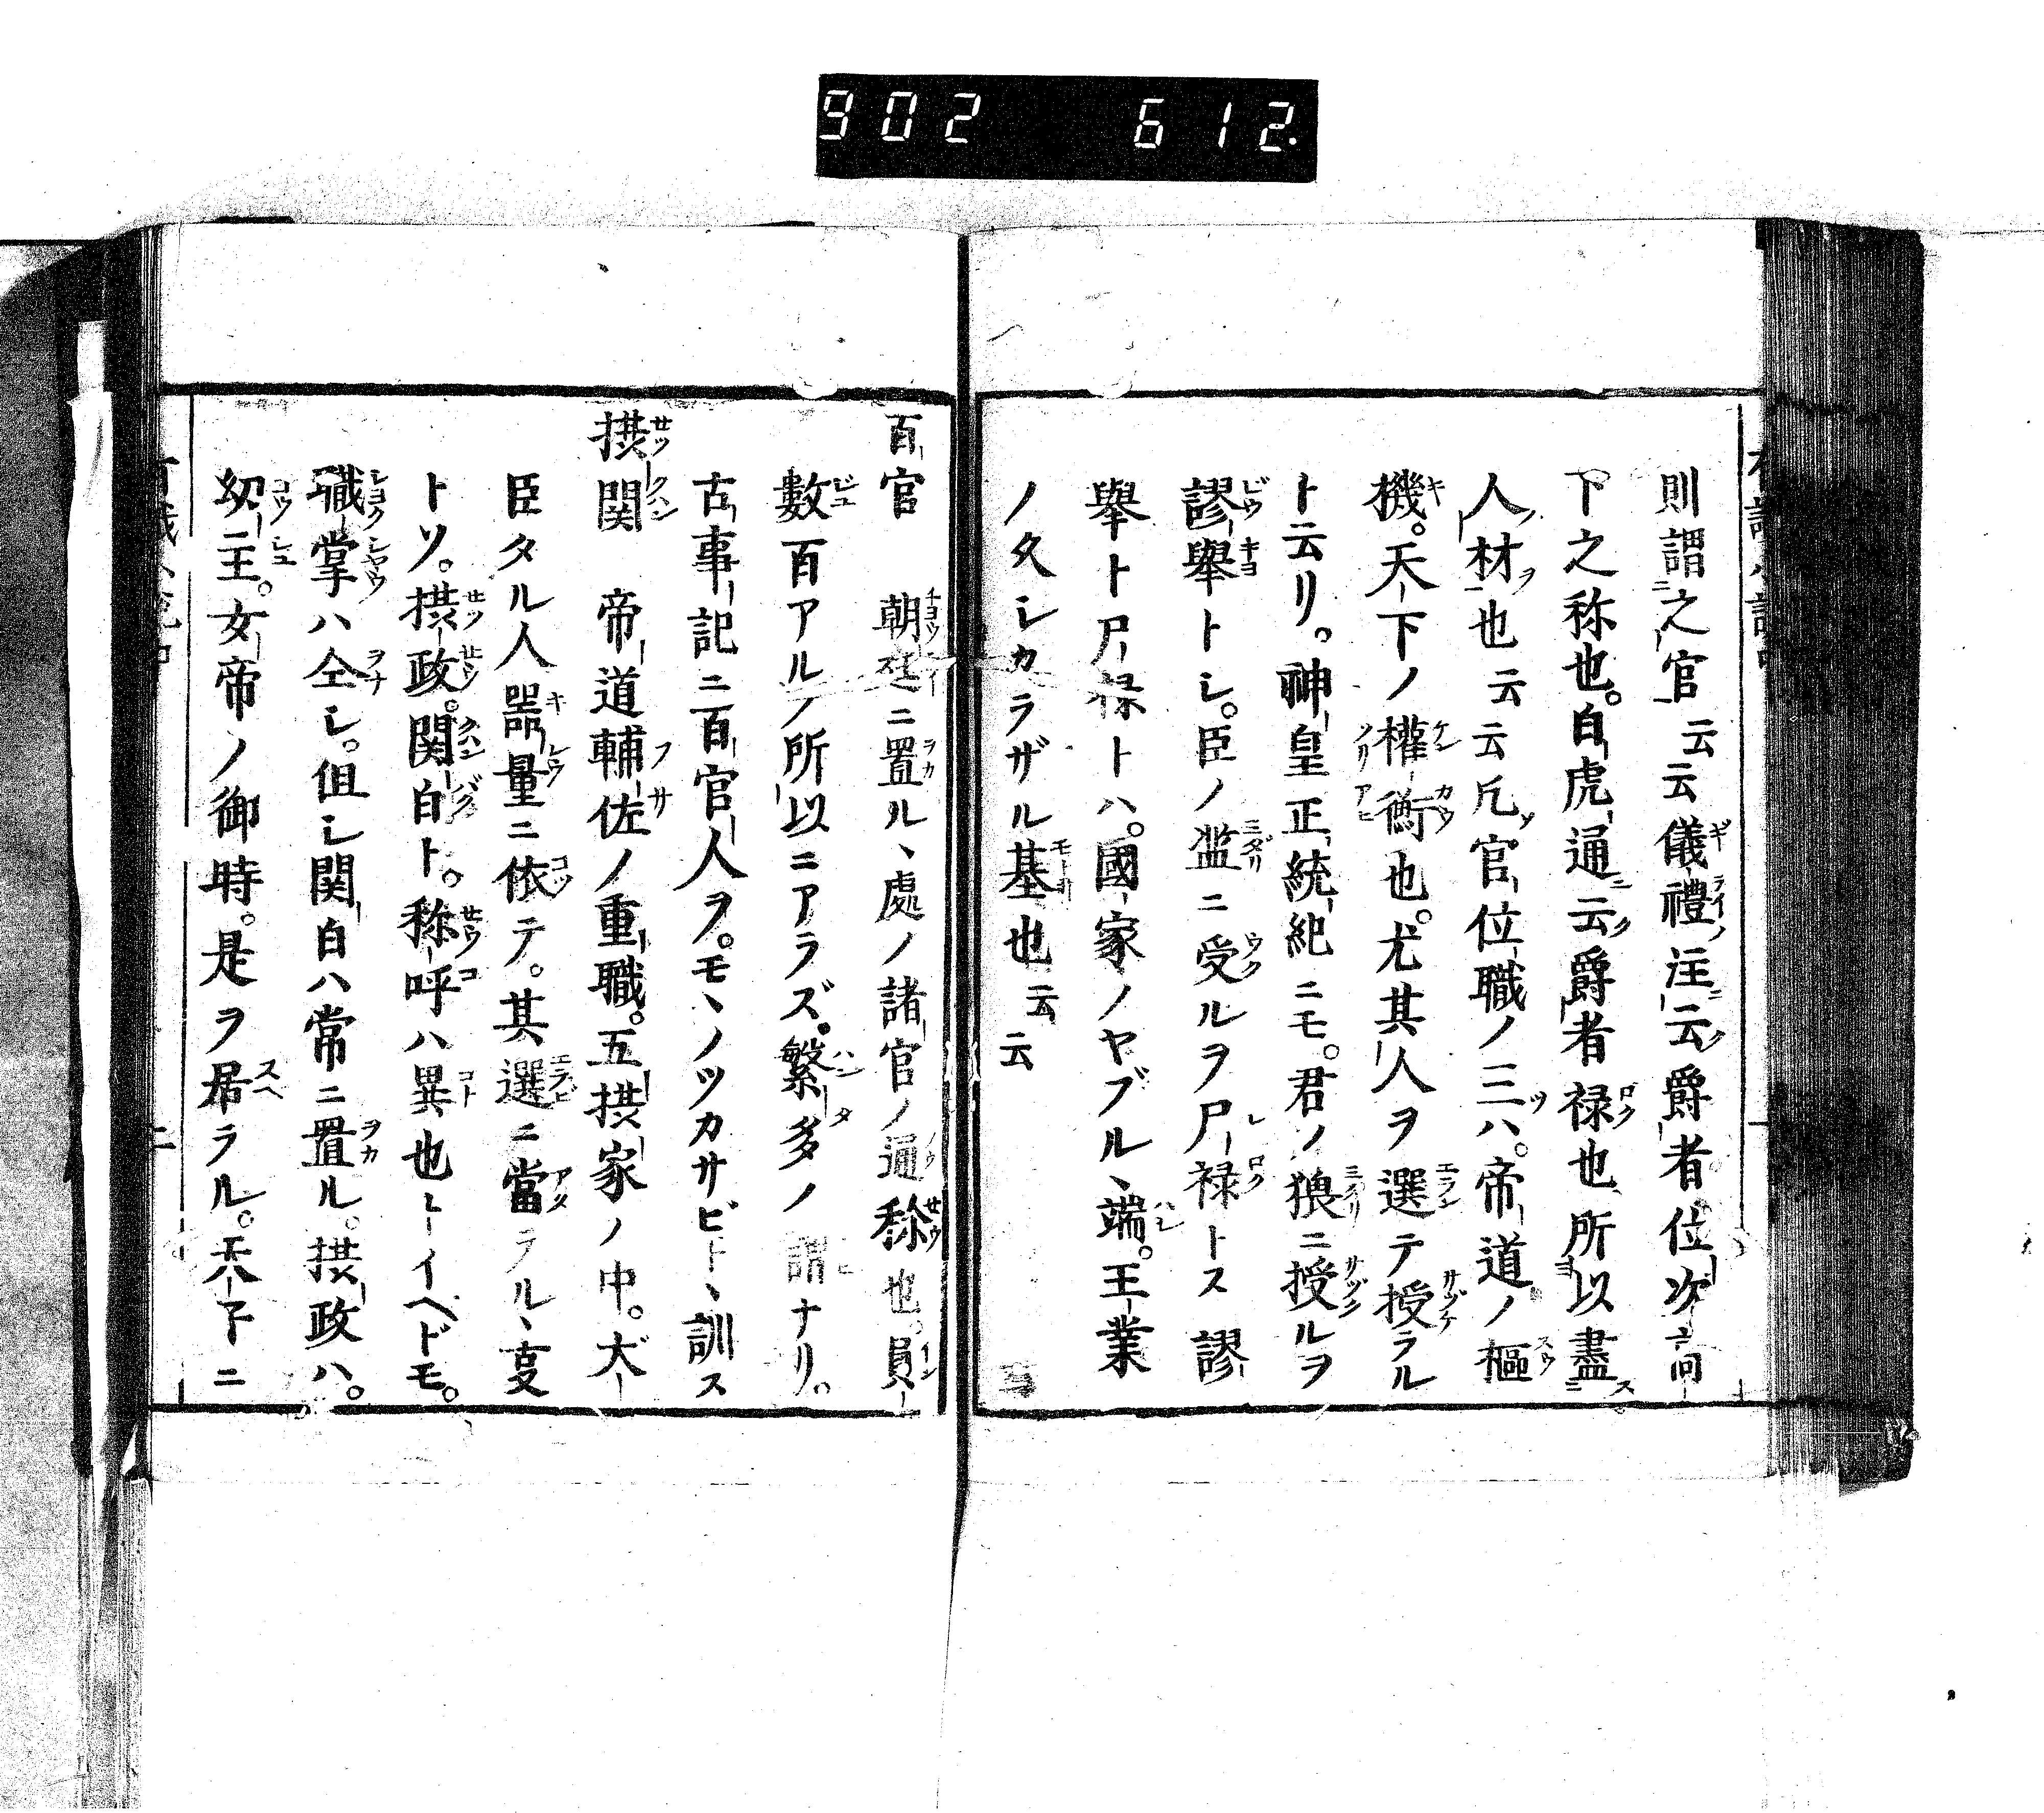 902 612.
則謂之官云云儀禮注云爵者位次高
下之称也。白虎通云爵者禄也所以盡
人材也云云凡官位職ノ三ハ。帝道ノ樞
機。天下ノ權衡也。尤其人ヲ選テ授ラル
ト云リ。神皇正統紀ニモ。君ノ猥ニ授ルヲ
謬擧トシ。臣ノ濫ニ受ルヲ尸禄トス謬
擧ト尸禄トハ。國家ノヤブルヽ端。王業
ノ久シカラザル基也云云
百官 朝廷ニ置ルヽ處ノ諸官ノ通称也。員
數百アルノ所以ニアラズ。繁多ノ謂ナリ。
古事記ニ百官人ヲ。モヽノツカサビトヽ訓ス
摂関 帝道輔佐ノ重職。五摂家ノ中。大
臣タル人器量ニ依テ。其選ニ當ラルヽ叓
トソ。摂政。関白ト。称呼ハ異也トイヘドモ。
職掌ハ仝シ。但シ関白ハ常ニ置ル。摂政ハ。
幼主。女帝ノ御時。是ヲ居ラル。天下ニ